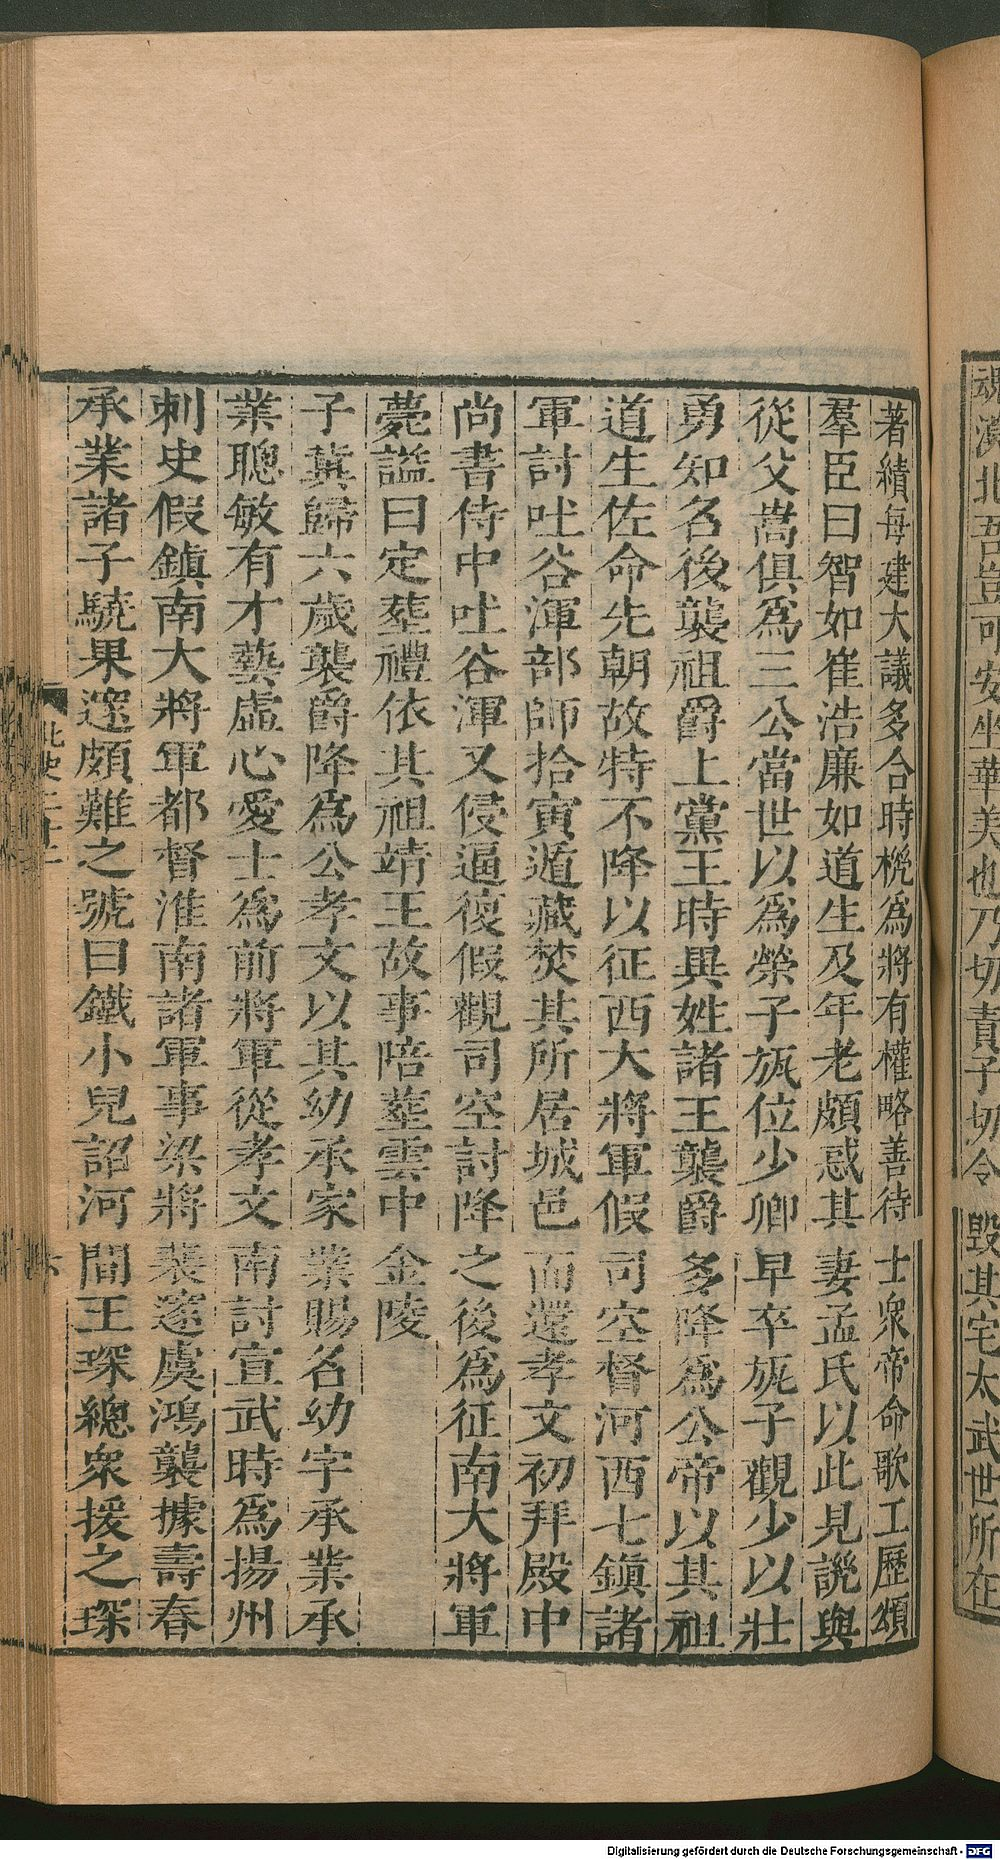 魂漠北吾豈可安坐華美也乃切責子切令毀其宅太武世所在
著績每建大議多合時機為將有權略善待士衆帝命歌工歷頌
羣臣曰智如崔浩廉如道生及年老頗惑其妻孟氏以此見譏與
從父嵩俱為三公當世以為榮子㫋位少卿早卒㫋子觀少以壯
勇知名後襲祖爵上黨王時異姓諸王襲爵多降為公帝以其祖
道生佐命先朝故特不降以征西大將軍假司空督河西七鎮諸
軍討吐谷渾部師拾寅遁藏焚其所居城邑而還孝文初拜殿中
尚書侍中吐谷渾又侵逼復假觀司空討降之後為征南大將軍
薨謚曰定葬禮依其祖靖王故事陪葬雲中金陵
子兾歸六歲襲爵降為公孝文以其幼承家業賜名幼字承業承
業聰敏有才藝虛心愛士為前將軍從孝文南討宣武時為揚州
刺史假鎮南大將軍都督淮南諸軍事梁將裴邃虞鴻襲據壽春
承業諸子驍果邃頗難之號曰鐵小兒詔河間王琛總衆援之琛
北史二十二
六
Digitalisierung gefördert durch die Deutsche Forschungsgemeinschaft - DFG